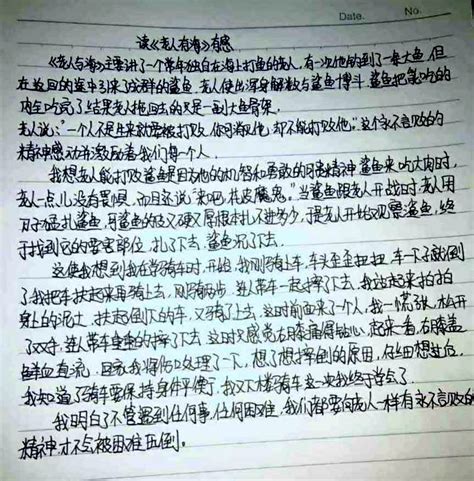 Date. No.
读《老人与海》有感
《老人与海》主要讲了一个常年独自在海上打鱼的老人,有一次他钓到了一条大鱼,但
在返回的途中引来了成群的鲨鱼,老人使出浑身解数与鲨鱼搏斗,鲨鱼把能吃的
肉全吃完了,结果老人拖回去的只是一副大鱼骨架。
老人说:“一个人不是生来就要被打败,你可以消灭他,却不能打败他。”这个永不言败的
精神感动并激励着我们每一个人。
我想老人能打败鲨鱼是因为他的机智和勇敢的
鲨鱼来吃大肉时,
老人一点儿没有畏惧,而且还说“来吧,
魔鬼。”当鲨鱼跟老人开战时,老人用
刀子猛扎鲨鱼,可鲨鱼的皮又硬又厚根本扎不进多少,于是老人开始观察鲨鱼,终
于找到它的要害部位,扎了下去,鲨鱼沉了下去。
这使我想到我在学骑车时,开始,我刚骑上车,车头歪歪扭扭,车一下子就倒
了,我把车扶起来再骑上去,刚骑两步,连人带车一起摔了下去,我站起来拍拍
身上的泥土,扶起倒下的车,又骑了上去,这时前面来了一个人,我一慌张,松开
了双手,连人带车重重的摔了下去,这时只感觉右膝痛得钻心,起来一看,右膝盖
鲜血直流,回家我将伤口处理了一下,想了想摔倒的原因,
我知道了骑车要保持身体平衡,我又
骑车这一次我终于学会了。
我明白了不管遇到任何事,任何困难,我们都要向老人一样有永不言败的
精神才不会被困难压倒。